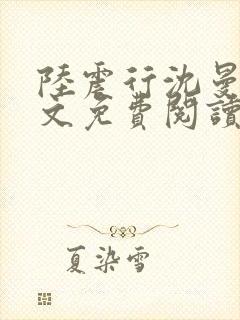 陸震行沈曼
文免費閱讀
夏染雪